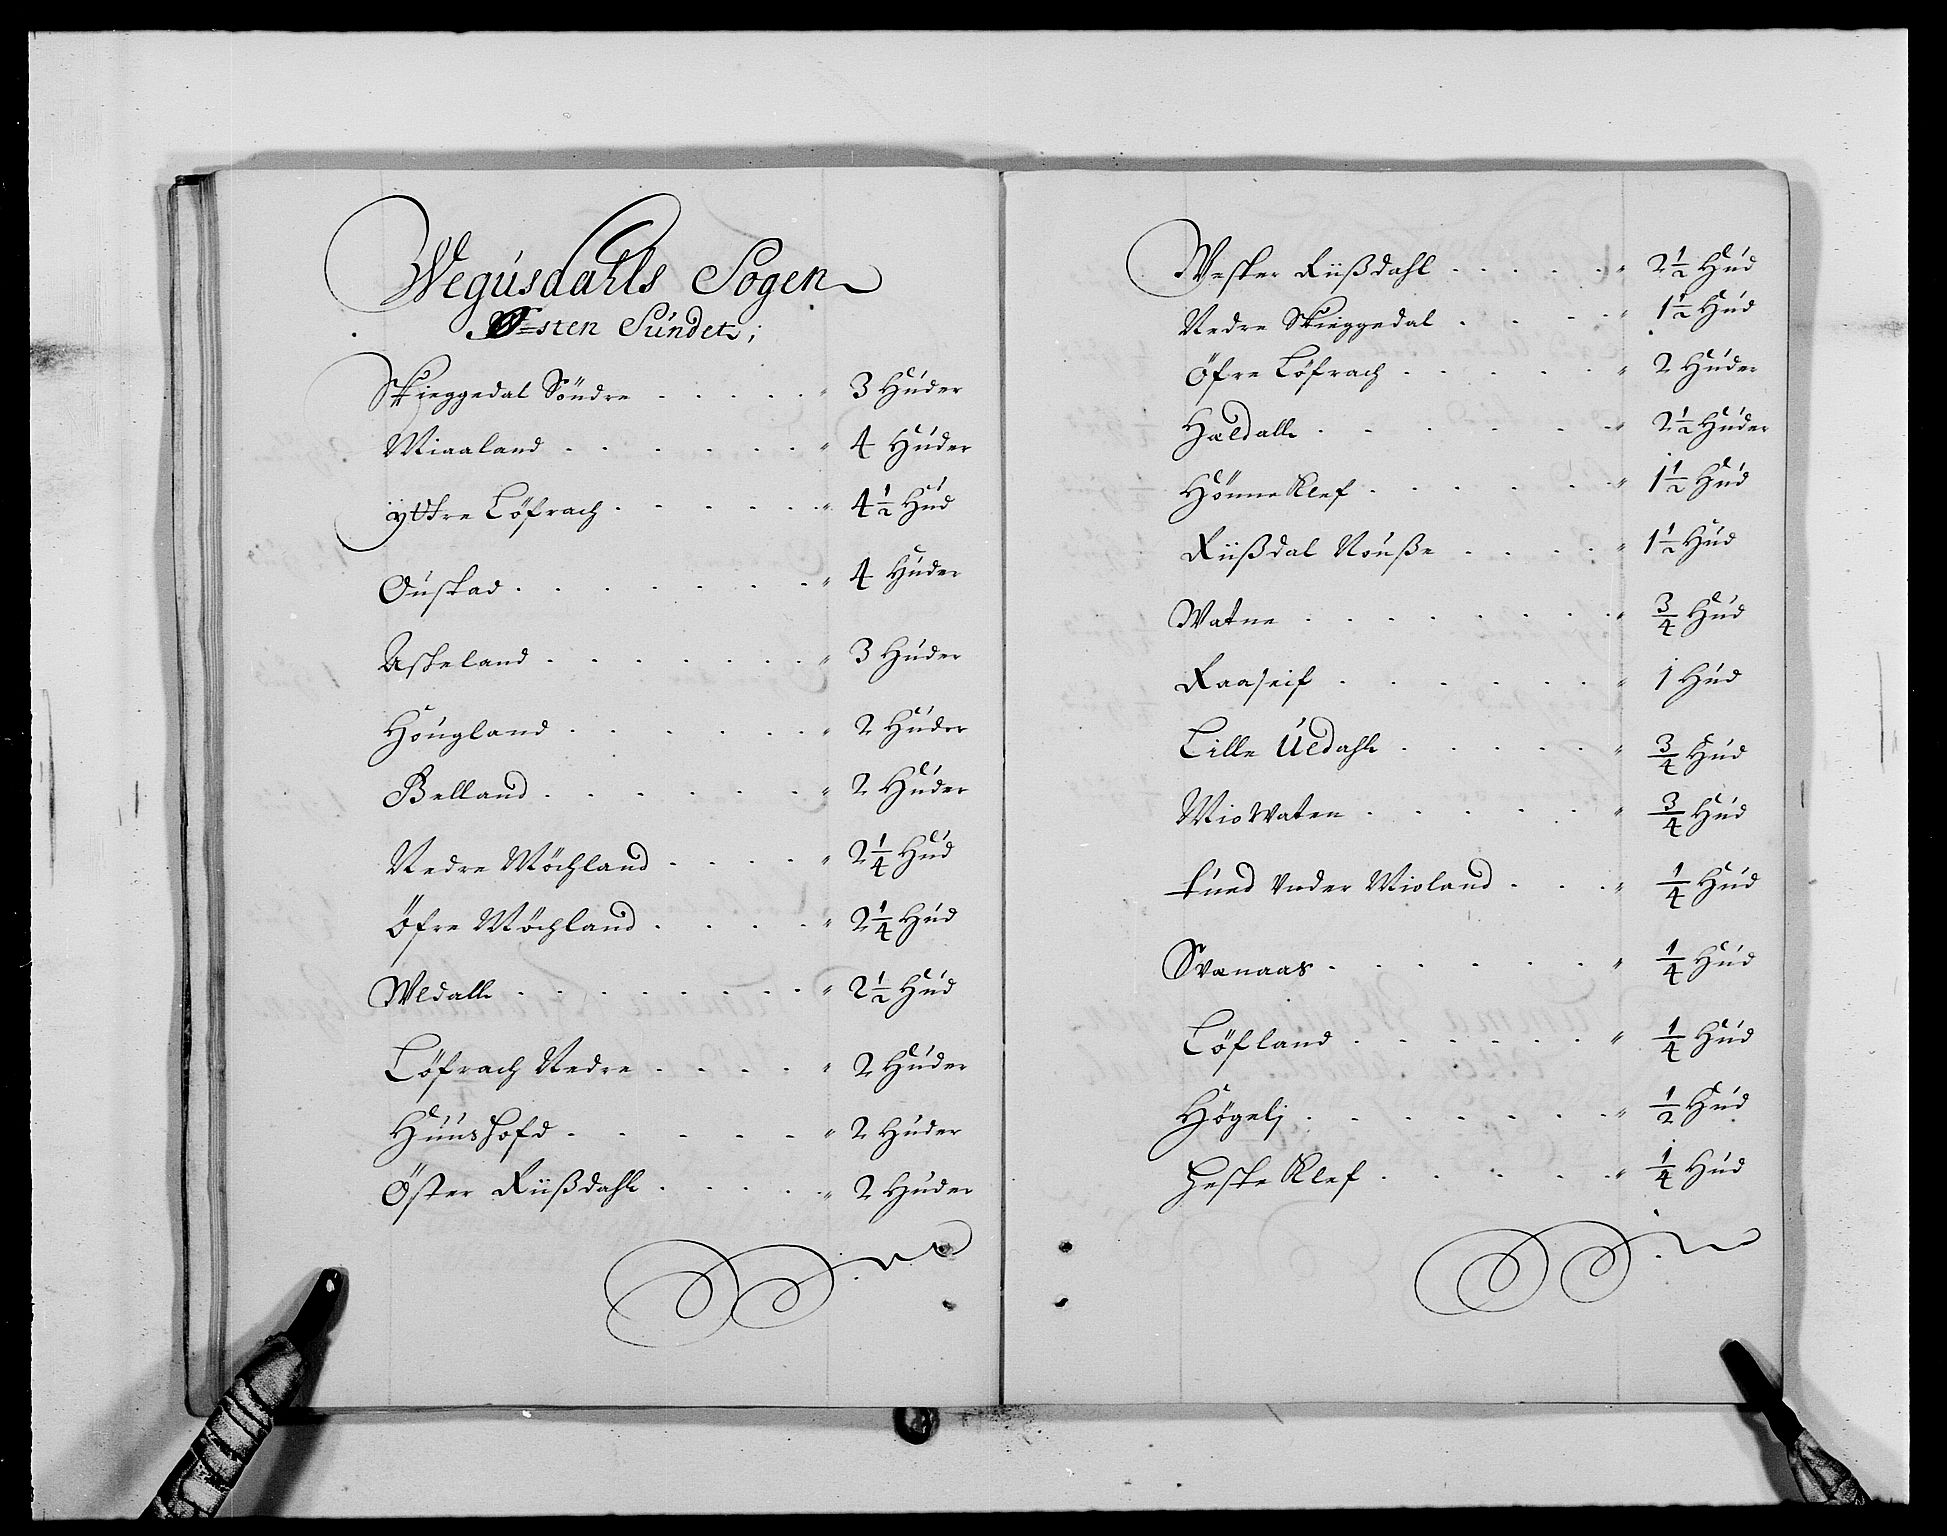 Wegusdahls Sogen
Østen Sundet;
Skieggedal Söndre . . . . . " 3 Huder
Miaaland . . . . . . " 4 Huder
ÿttre Löfrach . . . . . . " 4 1/2 Hud
Ouskad . . . . . . . " 4 Huder
Askeland . . . . . . . " 3 Huder
Hougland . . . . . . " 2 Huder
Belland . . . . . . " 2 Huder
Nedre Möchland . . . . " 2 1/4 Hud
Öfre Möchland . . . . " 2 1/4 Hud
Uldalh . . . . . . . . " 2 1/2 Hud
Löfrach Nedre . . . . " 2 Huder
Huushofd . . . . . " 2 Huder
Öster Riißdahl . . . . " 2 Huder
Wester Riißdahl . . . . . " 2 1/2 Hud
Nedre Skieggedal . . . . " 1 1/2 Hud
Öfre Löfrach . . . . . " 2 Huder
Hældalh . . . . . . " 2 1/2 Huder
Hönne Klef . . . . . . " 1 1/2 Hud
Riißdal Nouße . . . . " 1 1/2 Hud
Watne . . . . . . . " 3/4 Hud
Raaseif . . . . . . " 1 Hud
Lille Uldahl . . . . . " 3/4 Hud
Mio Waten . . . . . " 3/4 Hud
Lund Under Mioland . . . " 1/4 Hud
Svanaas . . . . . . " 1/4 Hud
Löfland . . . . . . " 1/4 Hud
Högelj . . . . . . . " 1/2 Hud
Heste Klef . . . . . " 1/4 Hud